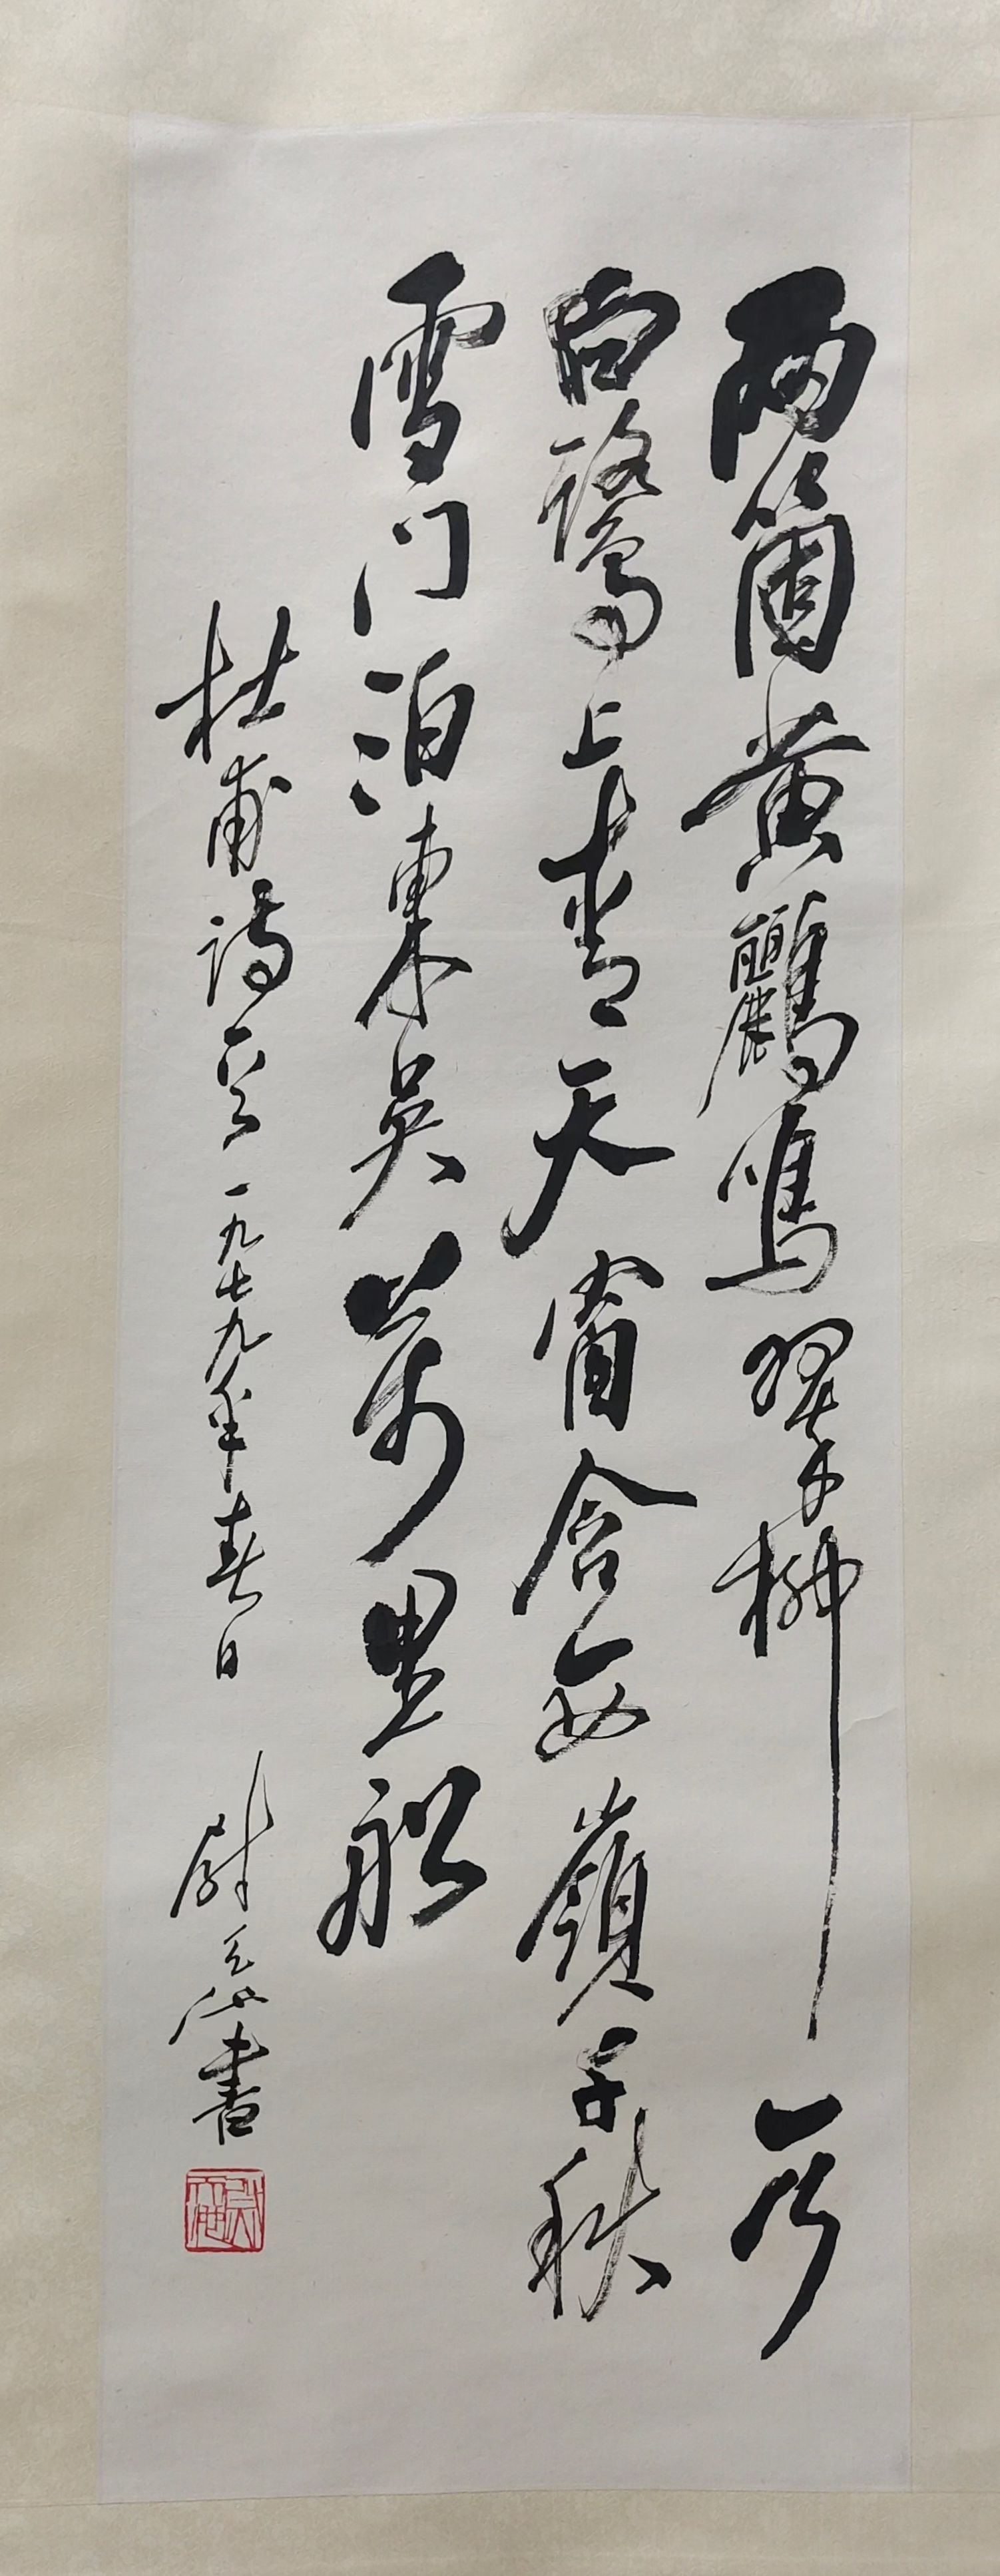 兩箇黄鸝鳴翠柳一行
白鷺上青天窗含西嶺千秋
雪门泊東吳萬里船
杜甫詩一首一九七九年春日 尉天池書
尉天池